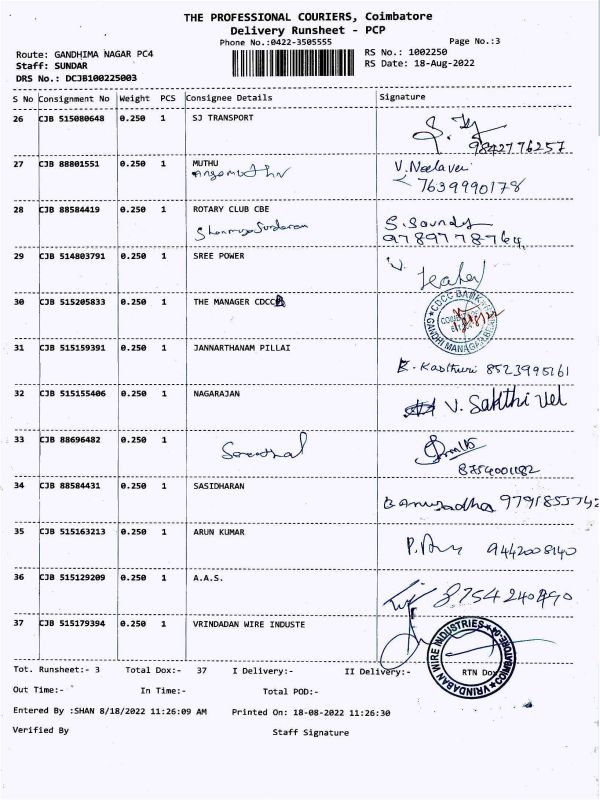 THE PROFESSIONAL COURIERS, Coimbatore
Delivery Runsheet - PCP
Phone No.:0422-3505555 Page No.:3
Route: GANDHIMA NAGAR PC4 RS No.: 1002250
Staff: SUNDAR RS Date: 18-Aug-2022
DRS No.: DCJB100225003
S No Consignment No Weight PCS Consignee Details Signature
26 CJB 515080648 0.250 1 SJ TRANSPORT
9842776257
27 CJB 88801551 0.250 1 MUTHU V. Neelaveni
7639990178
28 CJB 88584419 0.250 1 ROTARY CLUB CBE S. Soundy
Shanmugasundaram 9789778764
29 CJB 514803791 0.250 1 SREE POWER
30 CJB 515205833 0.250 1 THE MANAGER CDCCB
31 CJB 515159391 0.250 1 JANNARTHANAM PILLAI
K. Kasthuri 8523995161
32 CJB 515155406 0.250 1 NAGARAJAN V. Sakthi vel
33 CJB 88696482 0.250 1
8754001182
34 CJB 88584431 0.250 1 SASIDHARAN
B Anuradha 9791853742
35 CJB 515163213 0.250 1 ARUN KUMAR
9442008140
36 CJB 515129209 0.250 1 A.A.S. 8754240490
37 CJB 515179394 0.250 1 VRINDADAN WIRE INDUSTE
VRINDABAN WIRE INDUSTRIES COIMBATORE
Tot. Runsheet:- 3 Total Dox:- 37 I Delivery:- II Delivery:- RTN Dox
Out Time:- In Time:- Total POD:-
Entered By :SHAN 8/18/2022 11:26:09 AM Printed On: 18-08-2022 11:26:30
Verified By Staff Signature